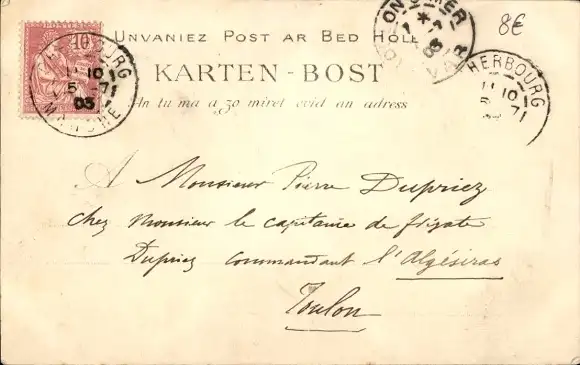 8€
UNVANIEZ POST AR BED HOLL
KARTEN-BOST
An tu ma a zo miret evid an adress
10
CHERBOURG
MANCHE
10
5 -7
03
VAR
03
CHERBOURG
10
A Monsieur Pierre Dupriez
chez Monsieur le capitaine de frégate
Dupriez commandant l'Algésiras
Toulon